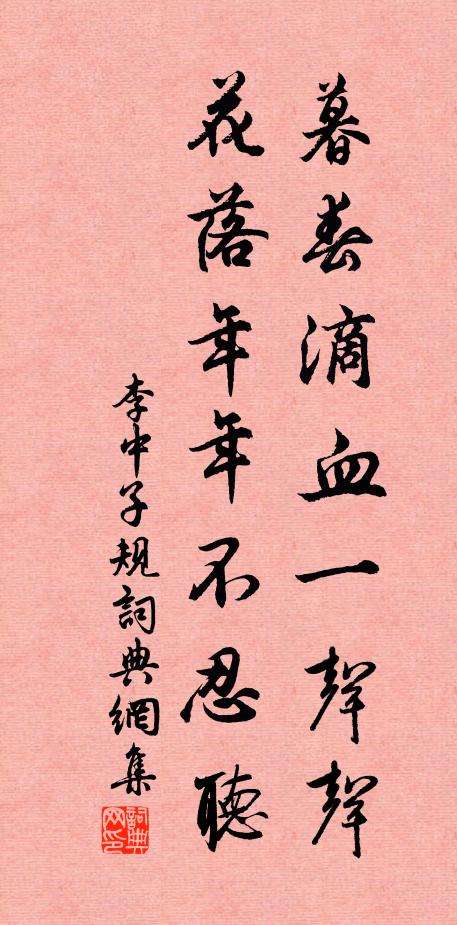 暮春滴血一聲聲
花落年年不忍聽
李中子規詞典網集
詞典网印